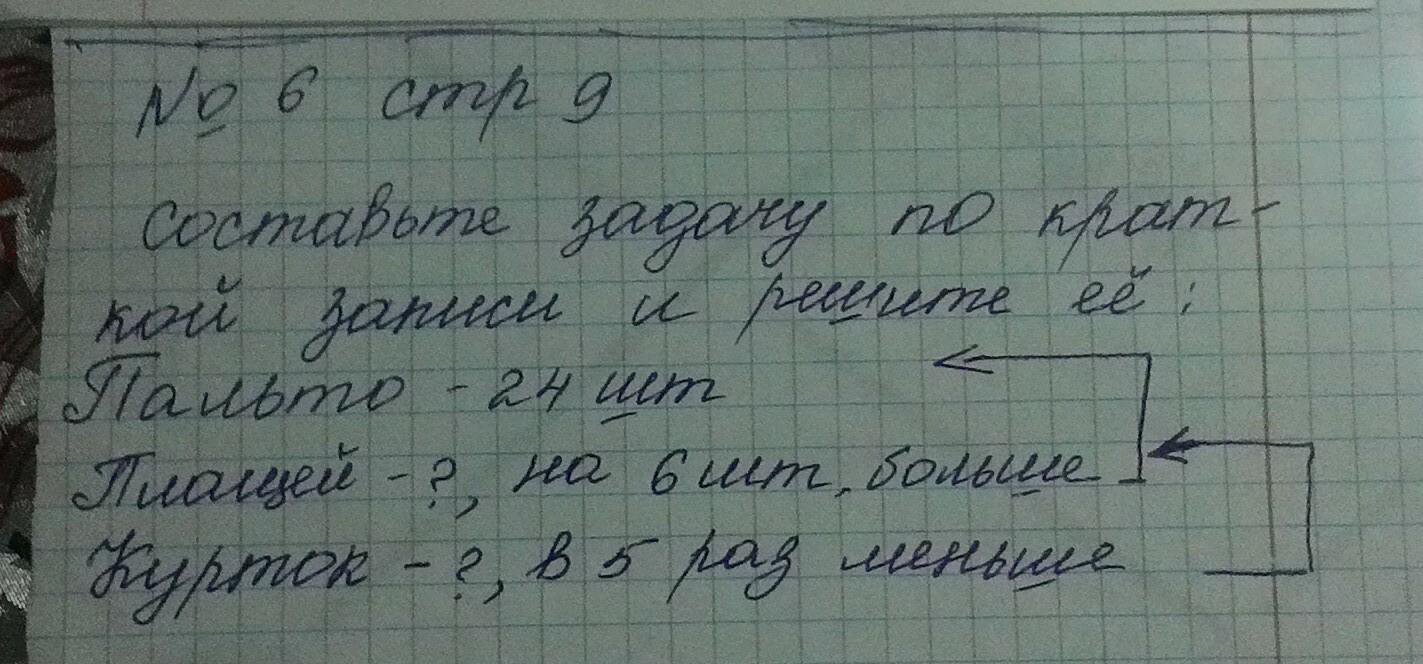 № 6 стр 9
Составьте задачу по крат-
кой записи и решите её:
Пальто - 24 шт
Плащей - ?, на 6 шт, больше
Курток - ?, в 5 раз меньше